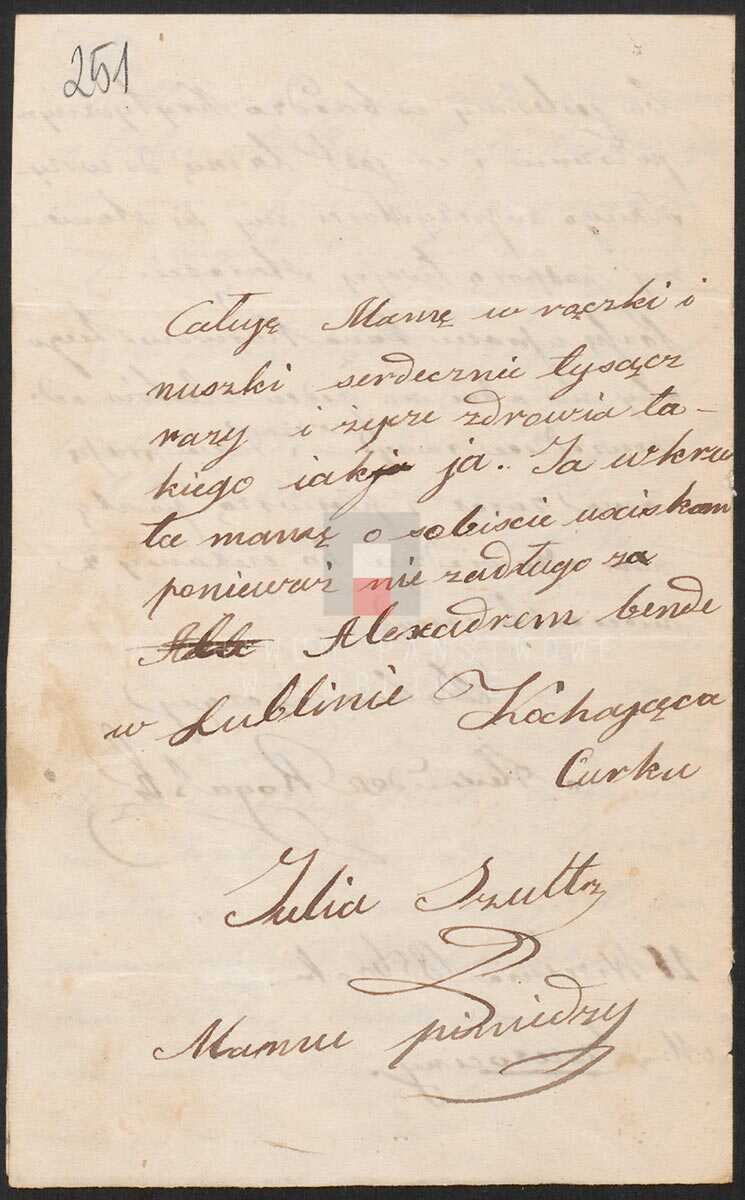 251
Całuję Mamę w rączki i
nuszki serdecznie tysącz
razy i życze zdrowia ta-
kiego iak ja. Ja wkru
tce mamę o sobiscie usciskam
poniewaz nie zadługo za
Alexadrem bende
w Lublinie Kochająca
Curku
Julia Szultz
Mamu piniedzy